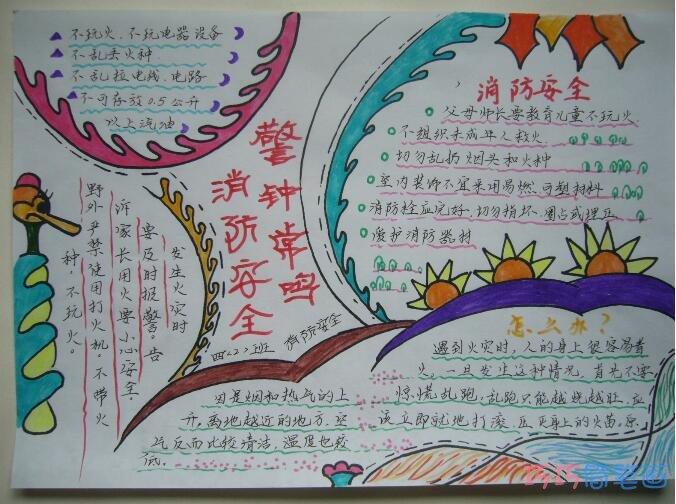 不玩火、不玩电器设备
不乱丢火种.
不乱拉电线、电路
不可存放0.5公升
以上汽油
消防安全
父母师长要教育儿童不玩火.
不组织未成年人救火
切勿乱扔烟头和火种
室内装饰不宜采用易燃、可塑材料
消防栓应完好,切勿损坏、圈占或埋压
爱护消防器材
警钟常鸣
消防安全
发生火灾时
要及时报警。告
诉家长用火要小心安全.
野外严禁使用打火机。不带火
种不玩火。
四<2>班 消防安全
因是烟和热气的上
升,离地越近的地方,空
气反而比较清洁,温度也较
低.
怎么办?
遇到火灾时,人的身上很容易着
火,一旦发生这种情况,首先不要
惊慌乱跑,乱跑只能越烧越旺.应
该立即就地打滚,压灭身上的火苗,原